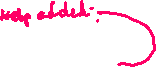 Help added: